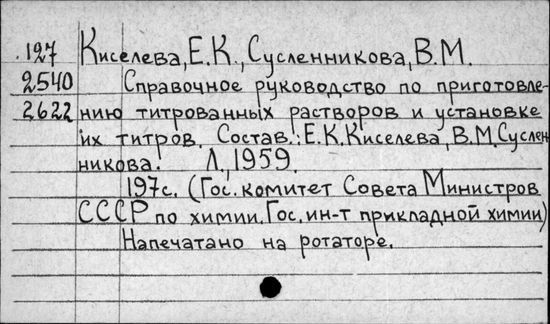 127 Киселева, Е.К., Сусленникова, В.М.
2540 Справочное руководство по приготовле-
2622 нию титрованных растворов и установке
их титров. Состав.: Е.К.Киселева, В.М.Суслен
никова. Л., 1959.
197с. (Гос. комитет Совета Министров
СССР по химии. Гос. ин-т прикладной химии)
Напечатано на ротаторе.